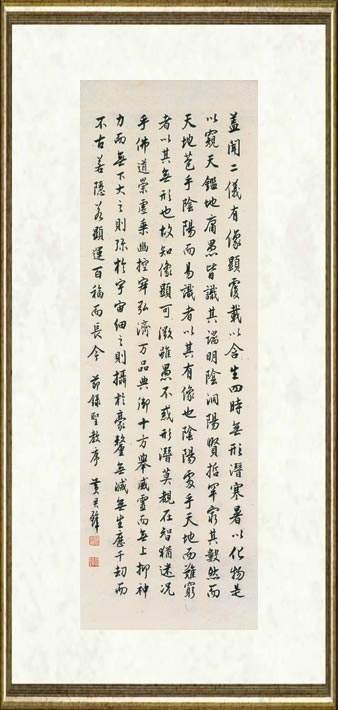 蓋聞二儀有像顯覆載以含生四時無形潛寒暑以化物是
以窺天鑑地庸愚皆識其端明陰洞陽賢哲罕窮其數然而
天地苞乎陰陽而易識者以其有像也陰陽處乎天地而難窮
者以其無形也故知像顯可徵雖愚不惑形潛莫覩在智猶迷況
乎佛道崇虛乘幽控寂弘濟萬品典御十方舉威靈而無上抑神
力而無下大之則彌於宇宙細之則攝於豪釐無滅無生歷千劫而
不古若隱若顯運百福而長今 節錄聖教序 黃君璧